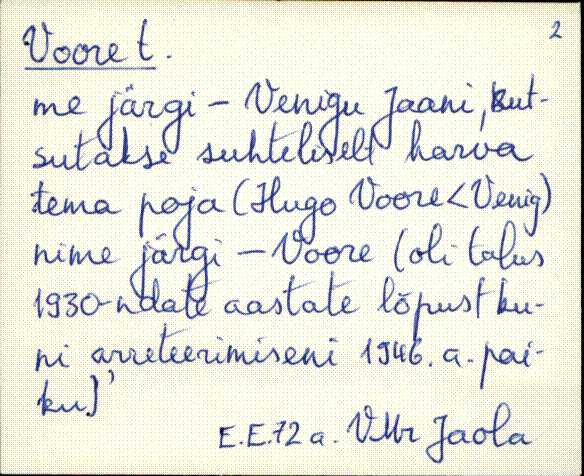 2
Voore t.
me järgi – Venigu Jaani, kut-
sutakse suhteliselt harva
tema poja (Hugo Voore < Venig)
nime järgi – Voore (oli talus
1930-ndate aastate lõpust ku-
ni arreteerimiseni 1946. a. pai-
ku)’
E.E. 72 a. VMr Jaola